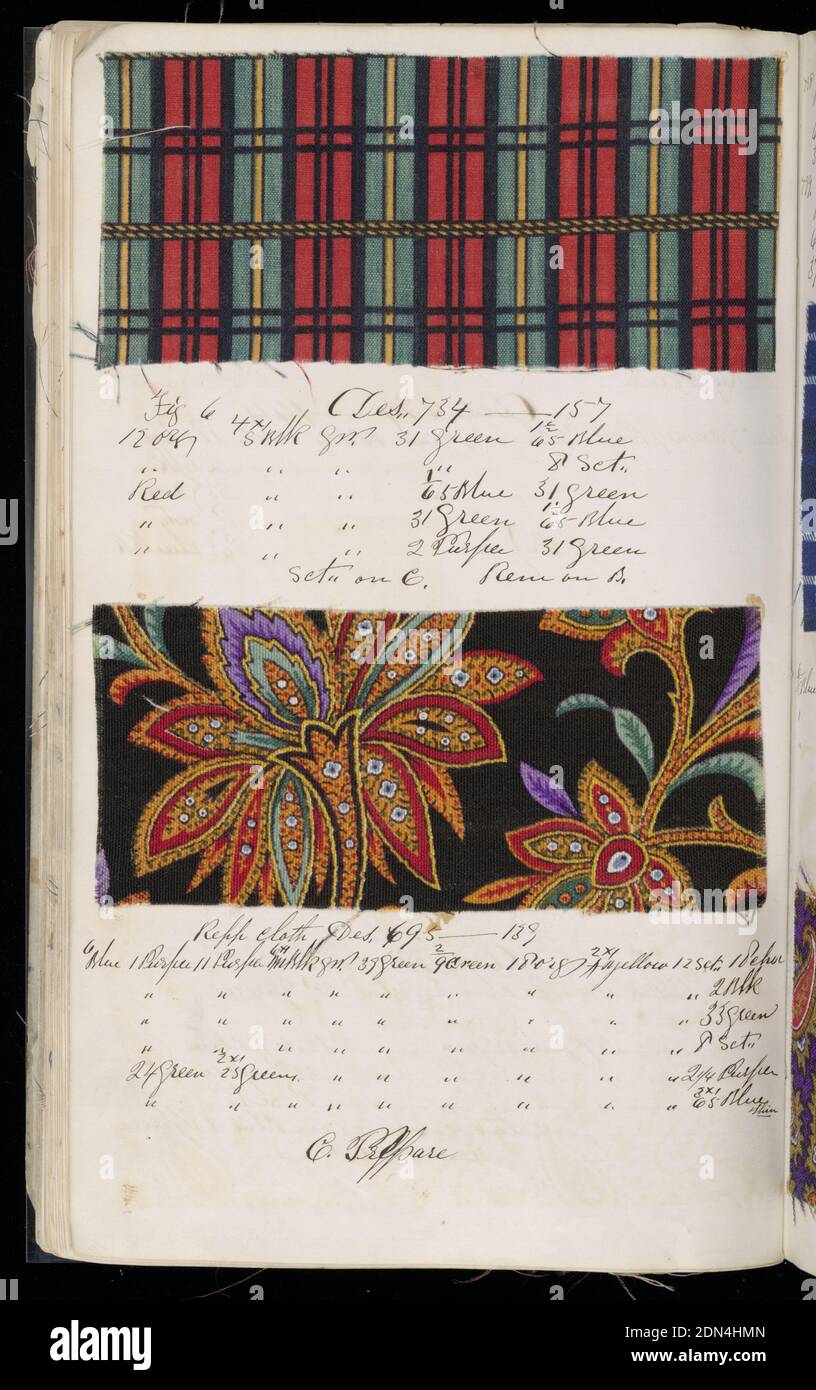 Fig 6 Des,, 734 — 157
12 org 4x1 8 Blk grn. 31 Green 65 Blue
" " " " 8 Set,,
Red " " 65 Blue 31 Green
" " " 31 Green 65 Blue
" " " 2 Purper 31 Green
Set,, on C. Rem on B.
Repp Cloth Des. 695 — 139
6 Blue 1 Purper 11 Purper Blk grn. 39 Green 2 9 Green 18 org 2x1 yellow 12 Set,,
" " " " " " " " " " 2 Blk
" " " " " " " " " " 33 Green
" " " " " " " " " " 8 Set,,
24 Green 2x1 25 Green " " " " " " " 2 1/4 Purper
" " " " " " " " " " 3x1 65 Blue
C. Prepare
alamy
Image ID: 2DN4HMN
www.alamy.com